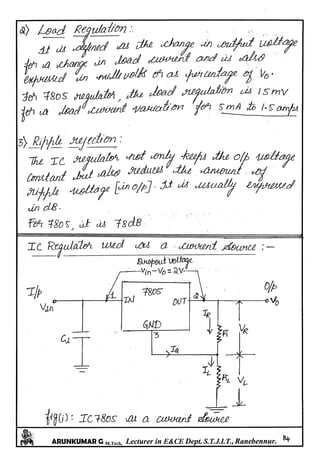 2) Load Regulation :
It is defined as the change in output voltage
for a change in load current and is also
expressed in millivolts or as percentage of Vo.
For 7805 regulator, the load regulation is 15mV
for a load current variation for 5mA to 1.5 amps
3) Ripple rejection :
The IC regulator not only keeps the o/p voltage
Constant but also reduces the amount of
ripple voltage [in o/p]. It is usually expressed
in dB.
For 7805, it is 78dB.
IC Regulator used as a current source :-
Dropout voltage
Vin-Vo=2V
I/p
Vin
1
IN
7805
OUT
2
GND
3
O/p
Vo
C1
IR
R1
VR
IQ
IL
RL
VL
fig(i): IC7805 as a current source
ARUNKUMAR G M.Tech, Lecturer in E&CE Dept. S.T.J.I.T., Ranebennur. 14